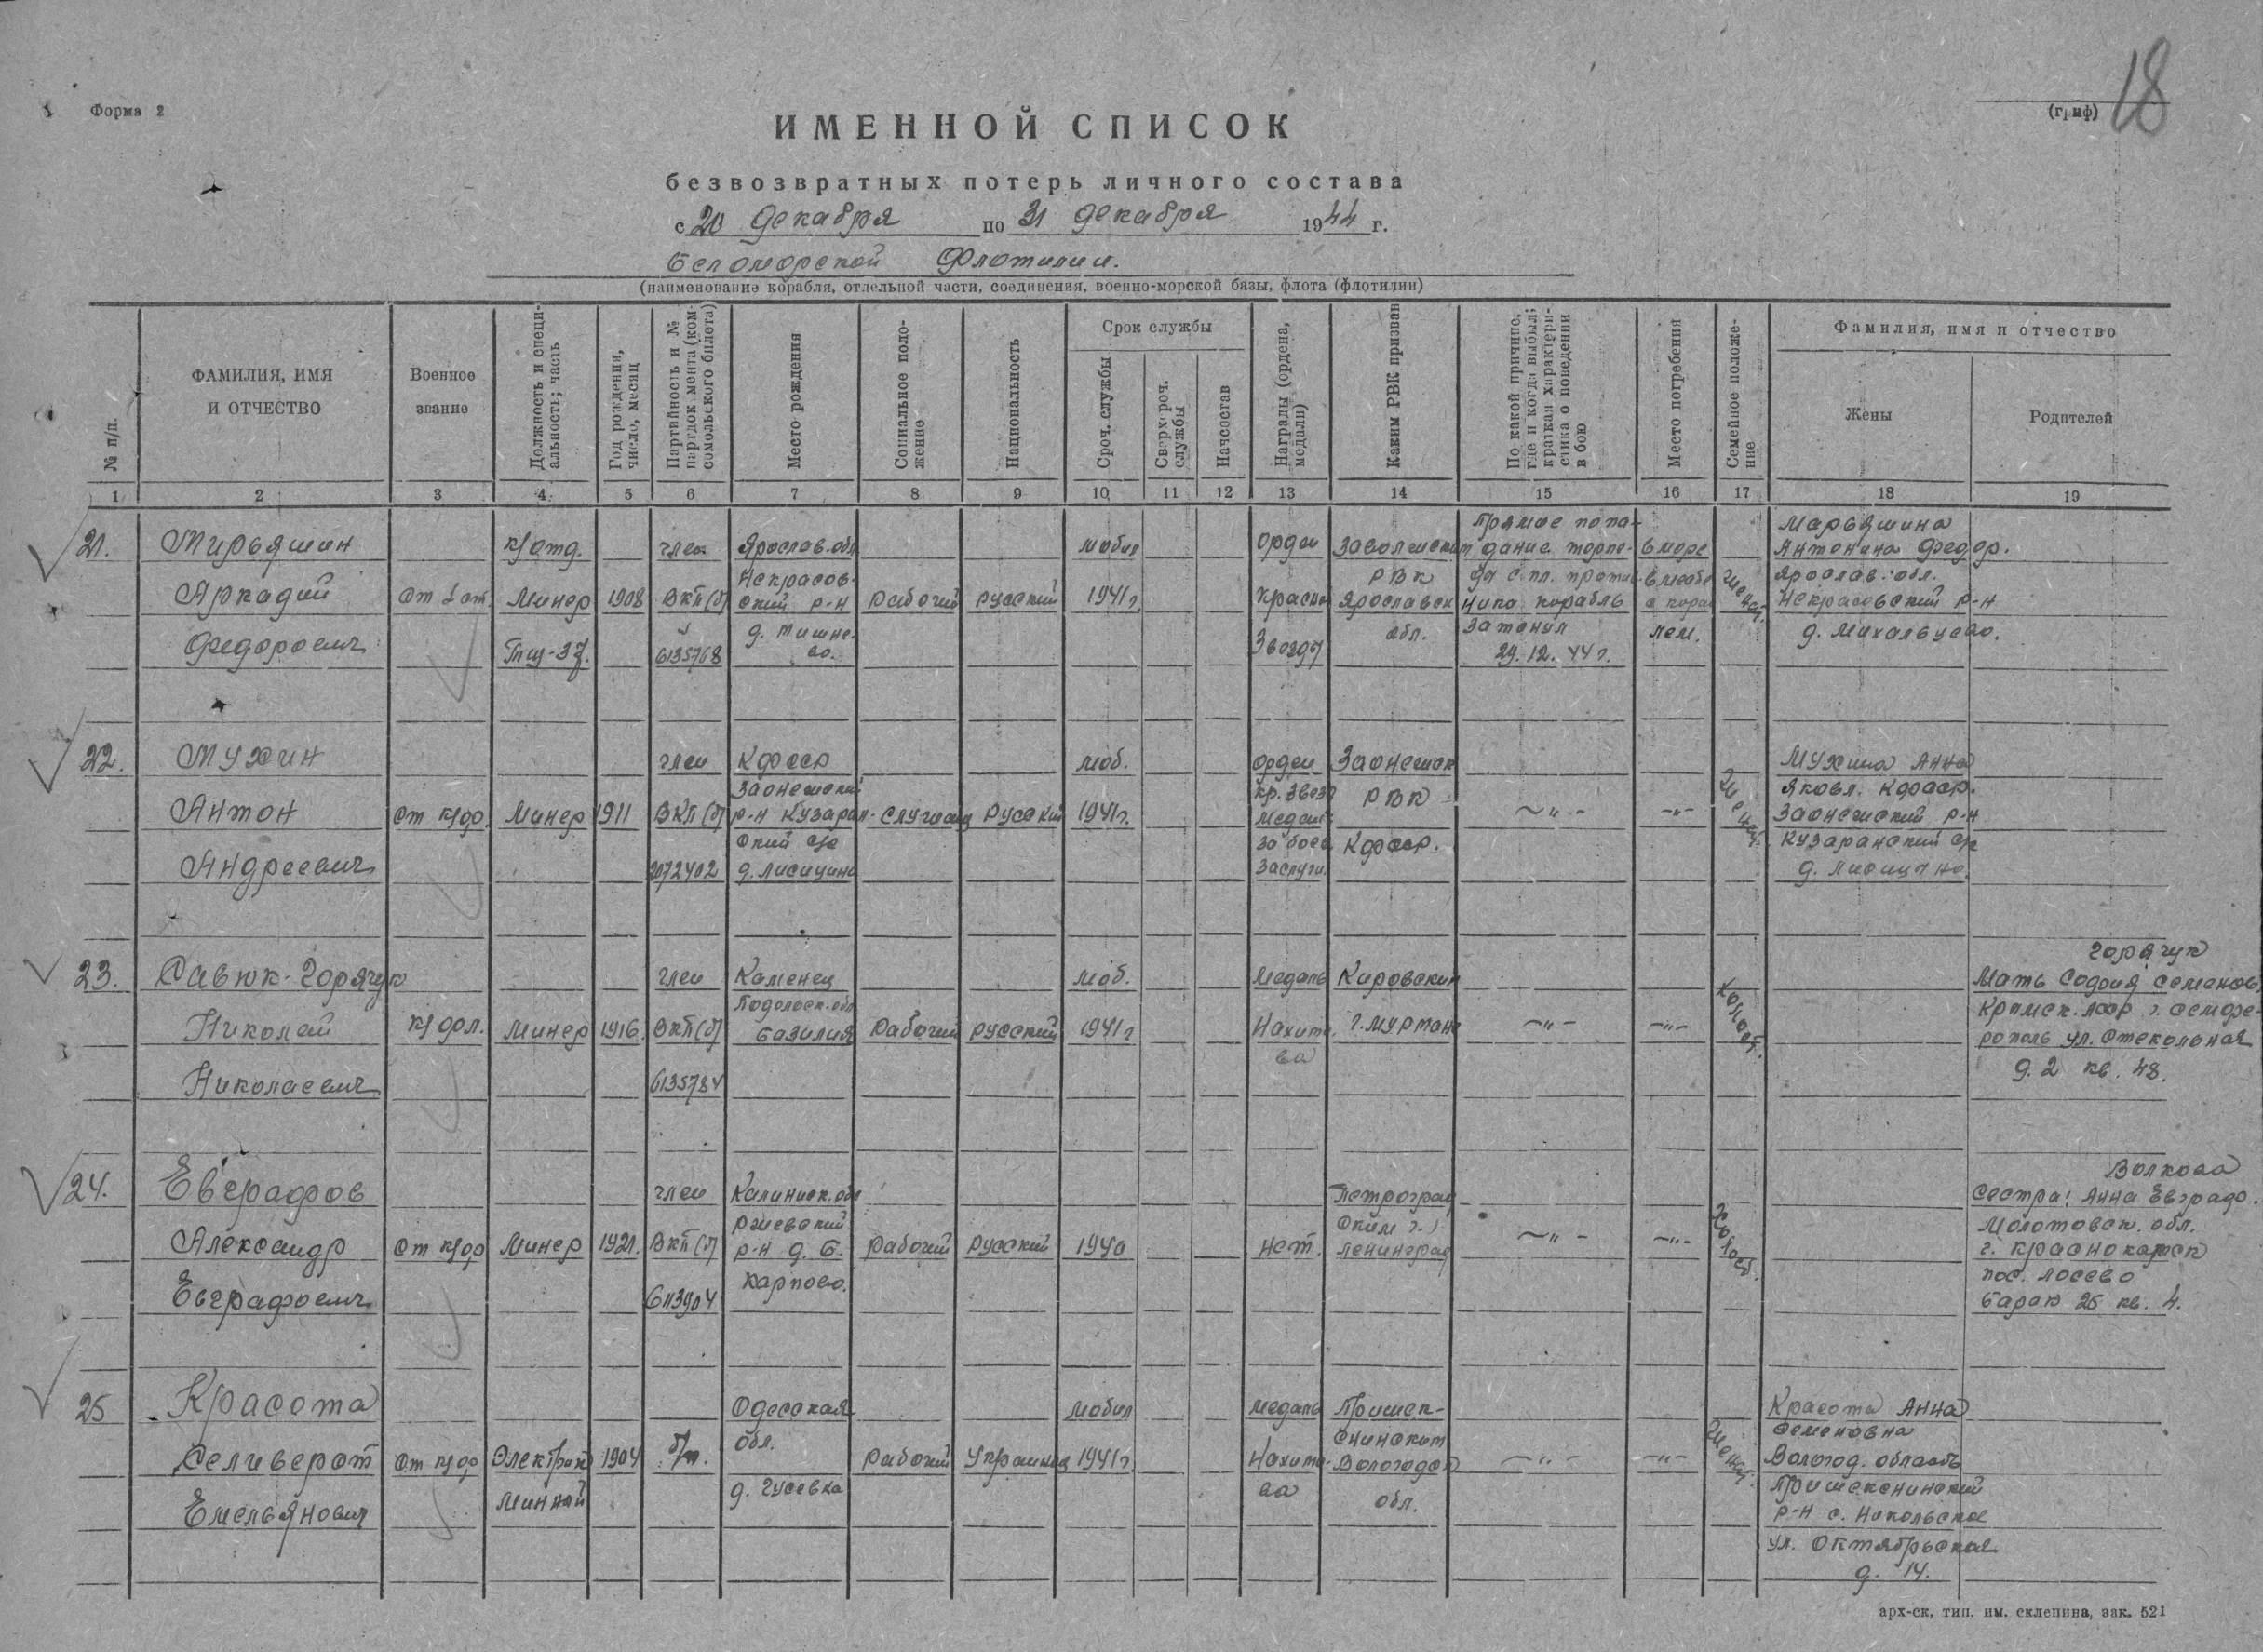 Форма 2
(гриф)
18
ИМЕННОЙ СПИСОК
безвозвратных потерь личного состава
с 20 декабря по 31 декабря 1944 г.
Беломорской Флотилии.
(наименование корабля, отдельной части, соединения, военно-морской базы, флота (флотилии)
№ п/п.
ФАМИЛИЯ, ИМЯ
И ОТЧЕСТВО
Военное
звание
Должность и специ-
альность; часть
Год рождения,
число, месяц
Партийность и №
партдокумента (ком-
сомольского билета)
Место рождения
Социальное поло-
жение
Национальность
Срок службы
Сроч. службы
Сверхсроч.
службы
Начсостав
Награды (ордена,
медали)
Каким РВК призван
По какой причине,
где и когда выбыл;
краткая характери-
стика о поведении
в бою
Место погребения
Семейное положе-
ние
Фамилия, имя и отчество
Жены
Родителей
1 2 3 4 5 6 7 8 9 10 11 12 13 14 15 16 17 18 19
21.
Мирьяшин
Аркадий
Федорович
ст 2 ст.
к/отд.
Минер
Тщ-37.
1908
член
ВКП(б)
6135768
Ярослав. обл
Некрасов-
ский р-н
д. Тишне-
во.
рабочий
русский
мобил
1941 г
орден
Красно
Звезды
Заволжским
РВК
Ярославск
обл.
Прямое попа-
дание торпе-
ды с пл. против-
ника корабль
затонул
29.12.44 г.
в море
вместе
с кораб
лем.
женат.
Марьяшина
Антонина Федор.
Ярослав. обл.
Некрасовский р-н
д. Михальцево.
22.
Мухин
Антон
Андреевич
ст к/ф.
Минер
1911
член
ВКП(б)
2072402
Кфсср
Заонежский
р-н Кузаран-
ский с/с
д. Лисицино
служащ
русский
моб.
1941г.
орден
кр. звезд
медаль
за боев
заслуги.
Заонежск
РВК
Кфсср.
—"—
—"—
женат.
Мухина Анна
Яковл. Кфсср.
Заонежский р-н
Кузаранский с/с
д. Лисицино.
23.
Савюк-Горячук
Николай
Николаевич
к/фл.
Минер
1916.
член
ВКП(б)
6135784
Каменец
Подольск. обл
Базилия
рабочий
русский
моб.
1941 г
медаль
Нахимо
ва
Кировским
г. Мурманс
—"—
—"—
холост.
Горячук
Мать София Семенов.
Крымск. АССР г. Симфе-
рополь ул. Стекольная
д. 2 кв. 48.
24.
Евграфов
Александр
Евграфович
ст к/ф
Минер
1921.
член
ВКП(б)
6113904
Калининск. обл
Ржевский
р-н д. Б.
Карпово.
рабочий
русский
1940
нет.
Петроград
ским г.
Ленинград
—"—
—"—
холост.
Волкова
Сестра: Анна Евграф.
Молотовск. обл.
г. Краснокамск
пос. Лосево
барак 25 кв. 4.
25
Красота
Селиверст
Емельянович
ст к/ф
Электрик
Минный
1904
б/п.
Одесская
обл.
д. Гусевка
рабочий
украинец
мобил
1941 г.
медаль
Нахимо-
ва
Пришек-
снинским
Вологодск
обл.
—"—
—"—
женат.
Красота Анна
Семеновна
Вологод. область
Пришекснинский
р-н с. Никольское
ул. Октябрьская
д. 14.
арх-ск, тип. им. склепина, зак. 521